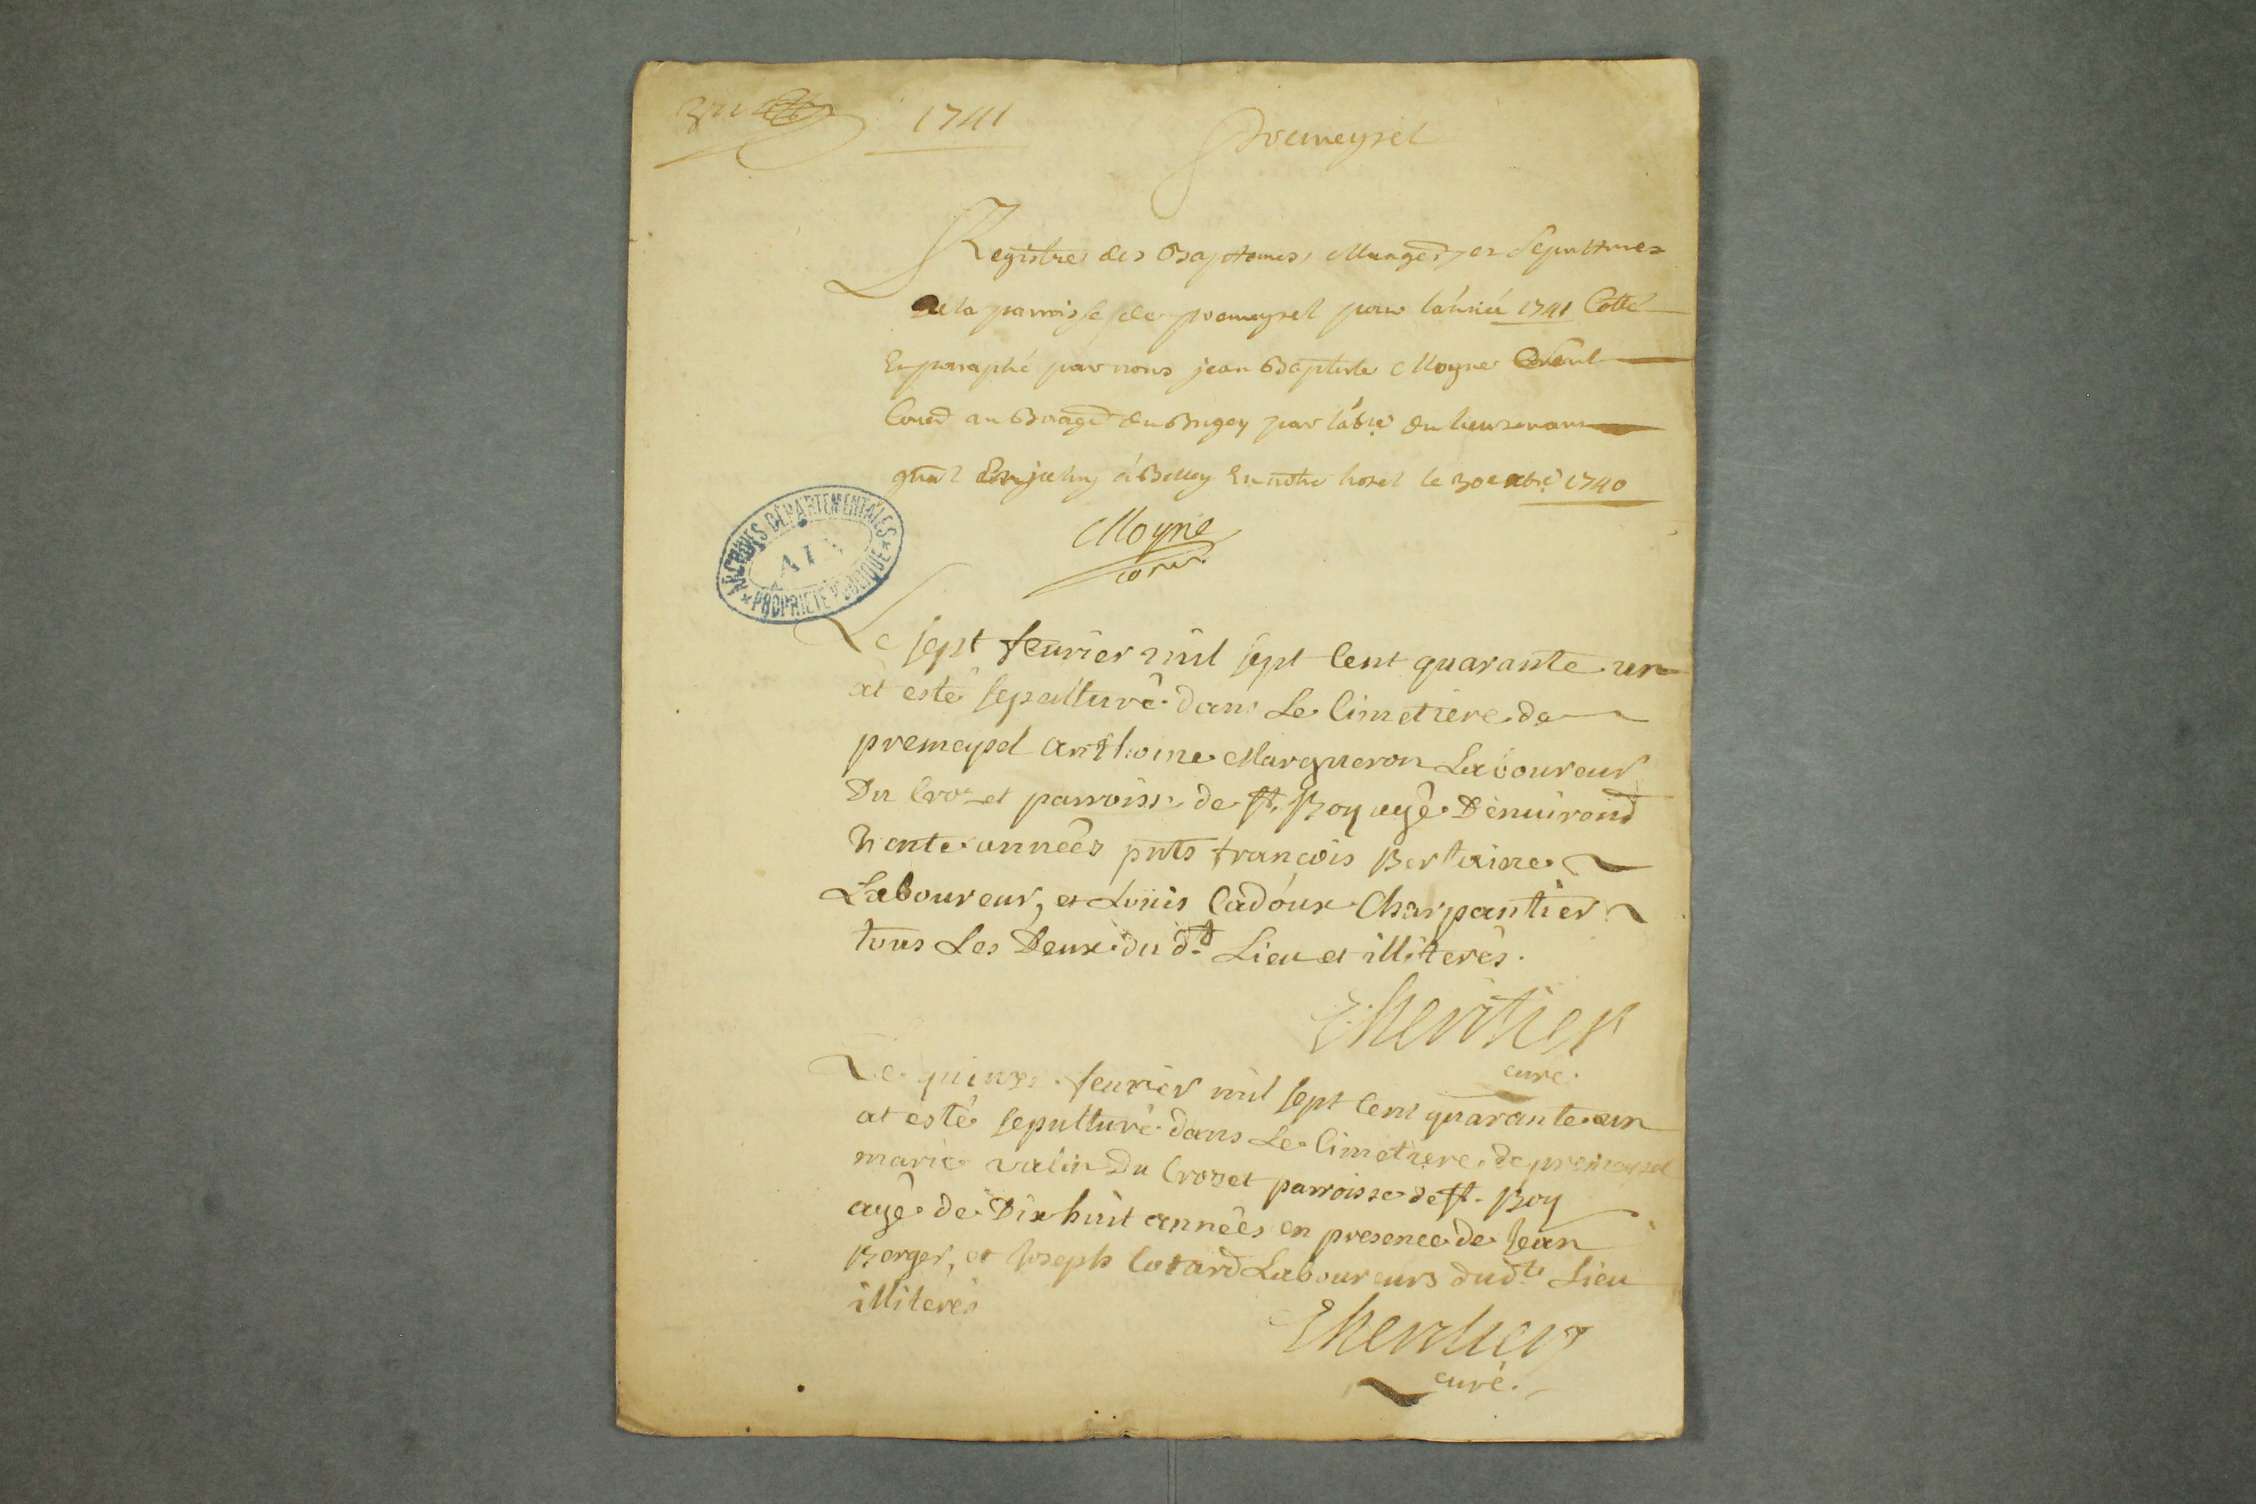 1741
premeyzel
Registre des Baptemes, Mariages, et Sepultures
de la parroisse de premeyzel pour l'année 1741 Cotté
Et paraphé par nous jean Baptiste Moyne
au Bailliage du Bugey par l'absce du lieutenant
gnal à Belley En notre hotel le 30e xbre 1740
Moyne
ARCHIVES DÉPARTEMENTALES
AIN
PROPRIÉTÉ PUBLIQUE
Le sept feurier mil sept cent quarante un
at esté sepulturé dans Le Cimetiere de
premeysel anthoine Margueron Laboureur
Du Crozet parroisse de st. Boy agé D'enuirond
trente années pnts françois Bertaine
Laboureur, et Louis Cadoux Charpantier
tous Les Deux du dt Lieu et illiterés.
Lheritier
curé.
Le quinze feurier mil sept cent quarante un
at esté sepulturé dans Le Cimetiere de premeysel
marie valin Du Crozet parroisse de st. Boy
agé de Dix huit années en presence de Jean
Berger, et Joseph Cotard Laboureurs dudt Lieu
illiterés
Lheritier
curé.